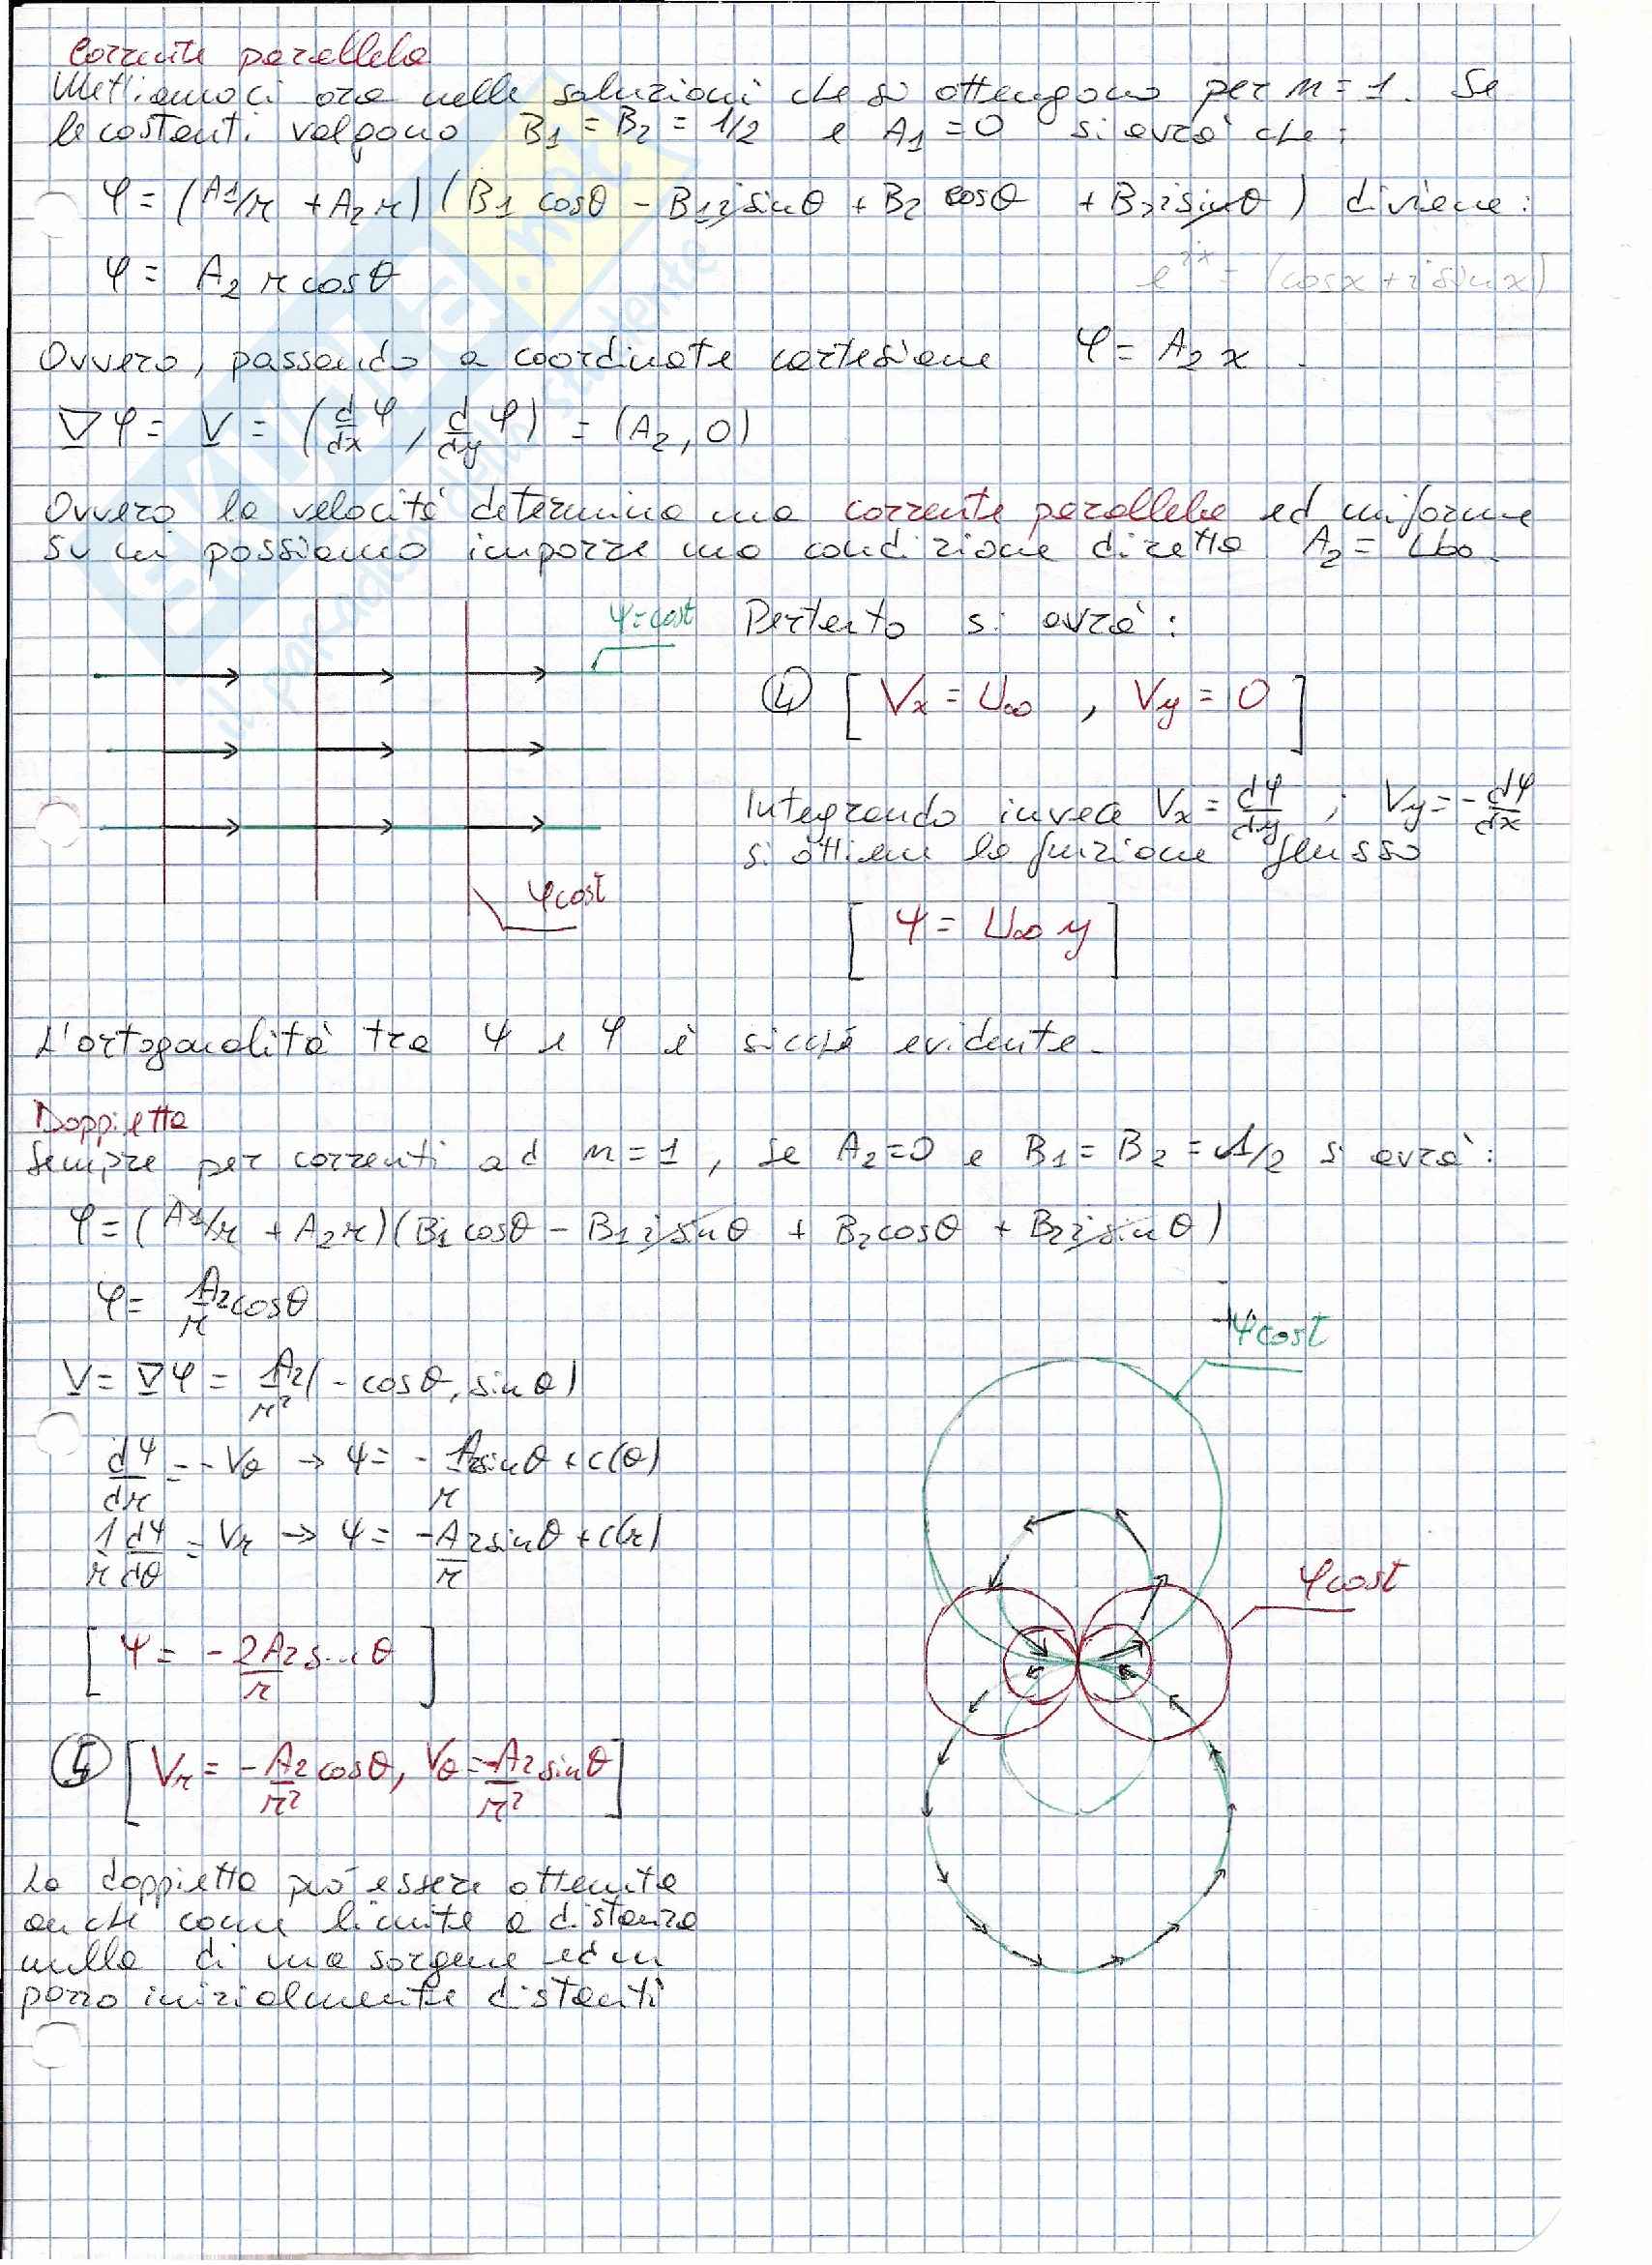 Corrente parallela
Mettiamoci ora nelle soluzioni che si ottengono per n = 1. Se
le costanti valgono B1 = B2 = 1/2 e A1 = 0 si avrà che:
φ = (A1/r + A2 r)(B1 cosθ - B1 i sinθ + B2 cosθ + B2 i sinθ) diviene:
φ = A2 r cosθ
e^ix = (cosx + i sinx)
Ovvero, passando a coordinate cartesiane φ = A2 x.
∇φ = V = (d/dx φ, d/dy φ) = (A2, 0)
Ovvero la velocità determina una corrente parallela ed uniforme
su cui possiamo imporre una condizione diretta A2 = U∞.
ψ = cost
Pertanto si avrà:
④ [Vx = U∞, Vy = 0]
Integrando invece Vx = dψ/dy ; Vy = - dψ/dx
si ottiene la funzione flusso
φ cost
[ψ = U∞ y]
L'ortogonalità tra ψ e φ è sicché evidente.
Doppietta
Sempre per correnti ad n = 1, se A2 = 0 e B1 = B2 = 1/2 si avrà:
φ = (A1/r + A2 r)(B1 cosθ - B1 i sinθ + B2 cosθ + B2 i sinθ)
φ = A2/r cosθ
ψ cost
V = ∇φ = A2/r² (- cosθ, sinθ)
dψ/dr = - Vθ → ψ = - A2/r sinθ + c(θ)
1/r dψ/dθ = Vr → ψ = - A2/r sinθ + c(r)
φ cost
[ψ = - 2A2/r sin θ]
⑤ [Vr = - A2/r² cosθ, Vθ = - A2/r² sinθ]
La doppietta può essere ottenuta
anche come limite a distanza
nulla di una sorgene ed un
pozzo inizialmente distanti